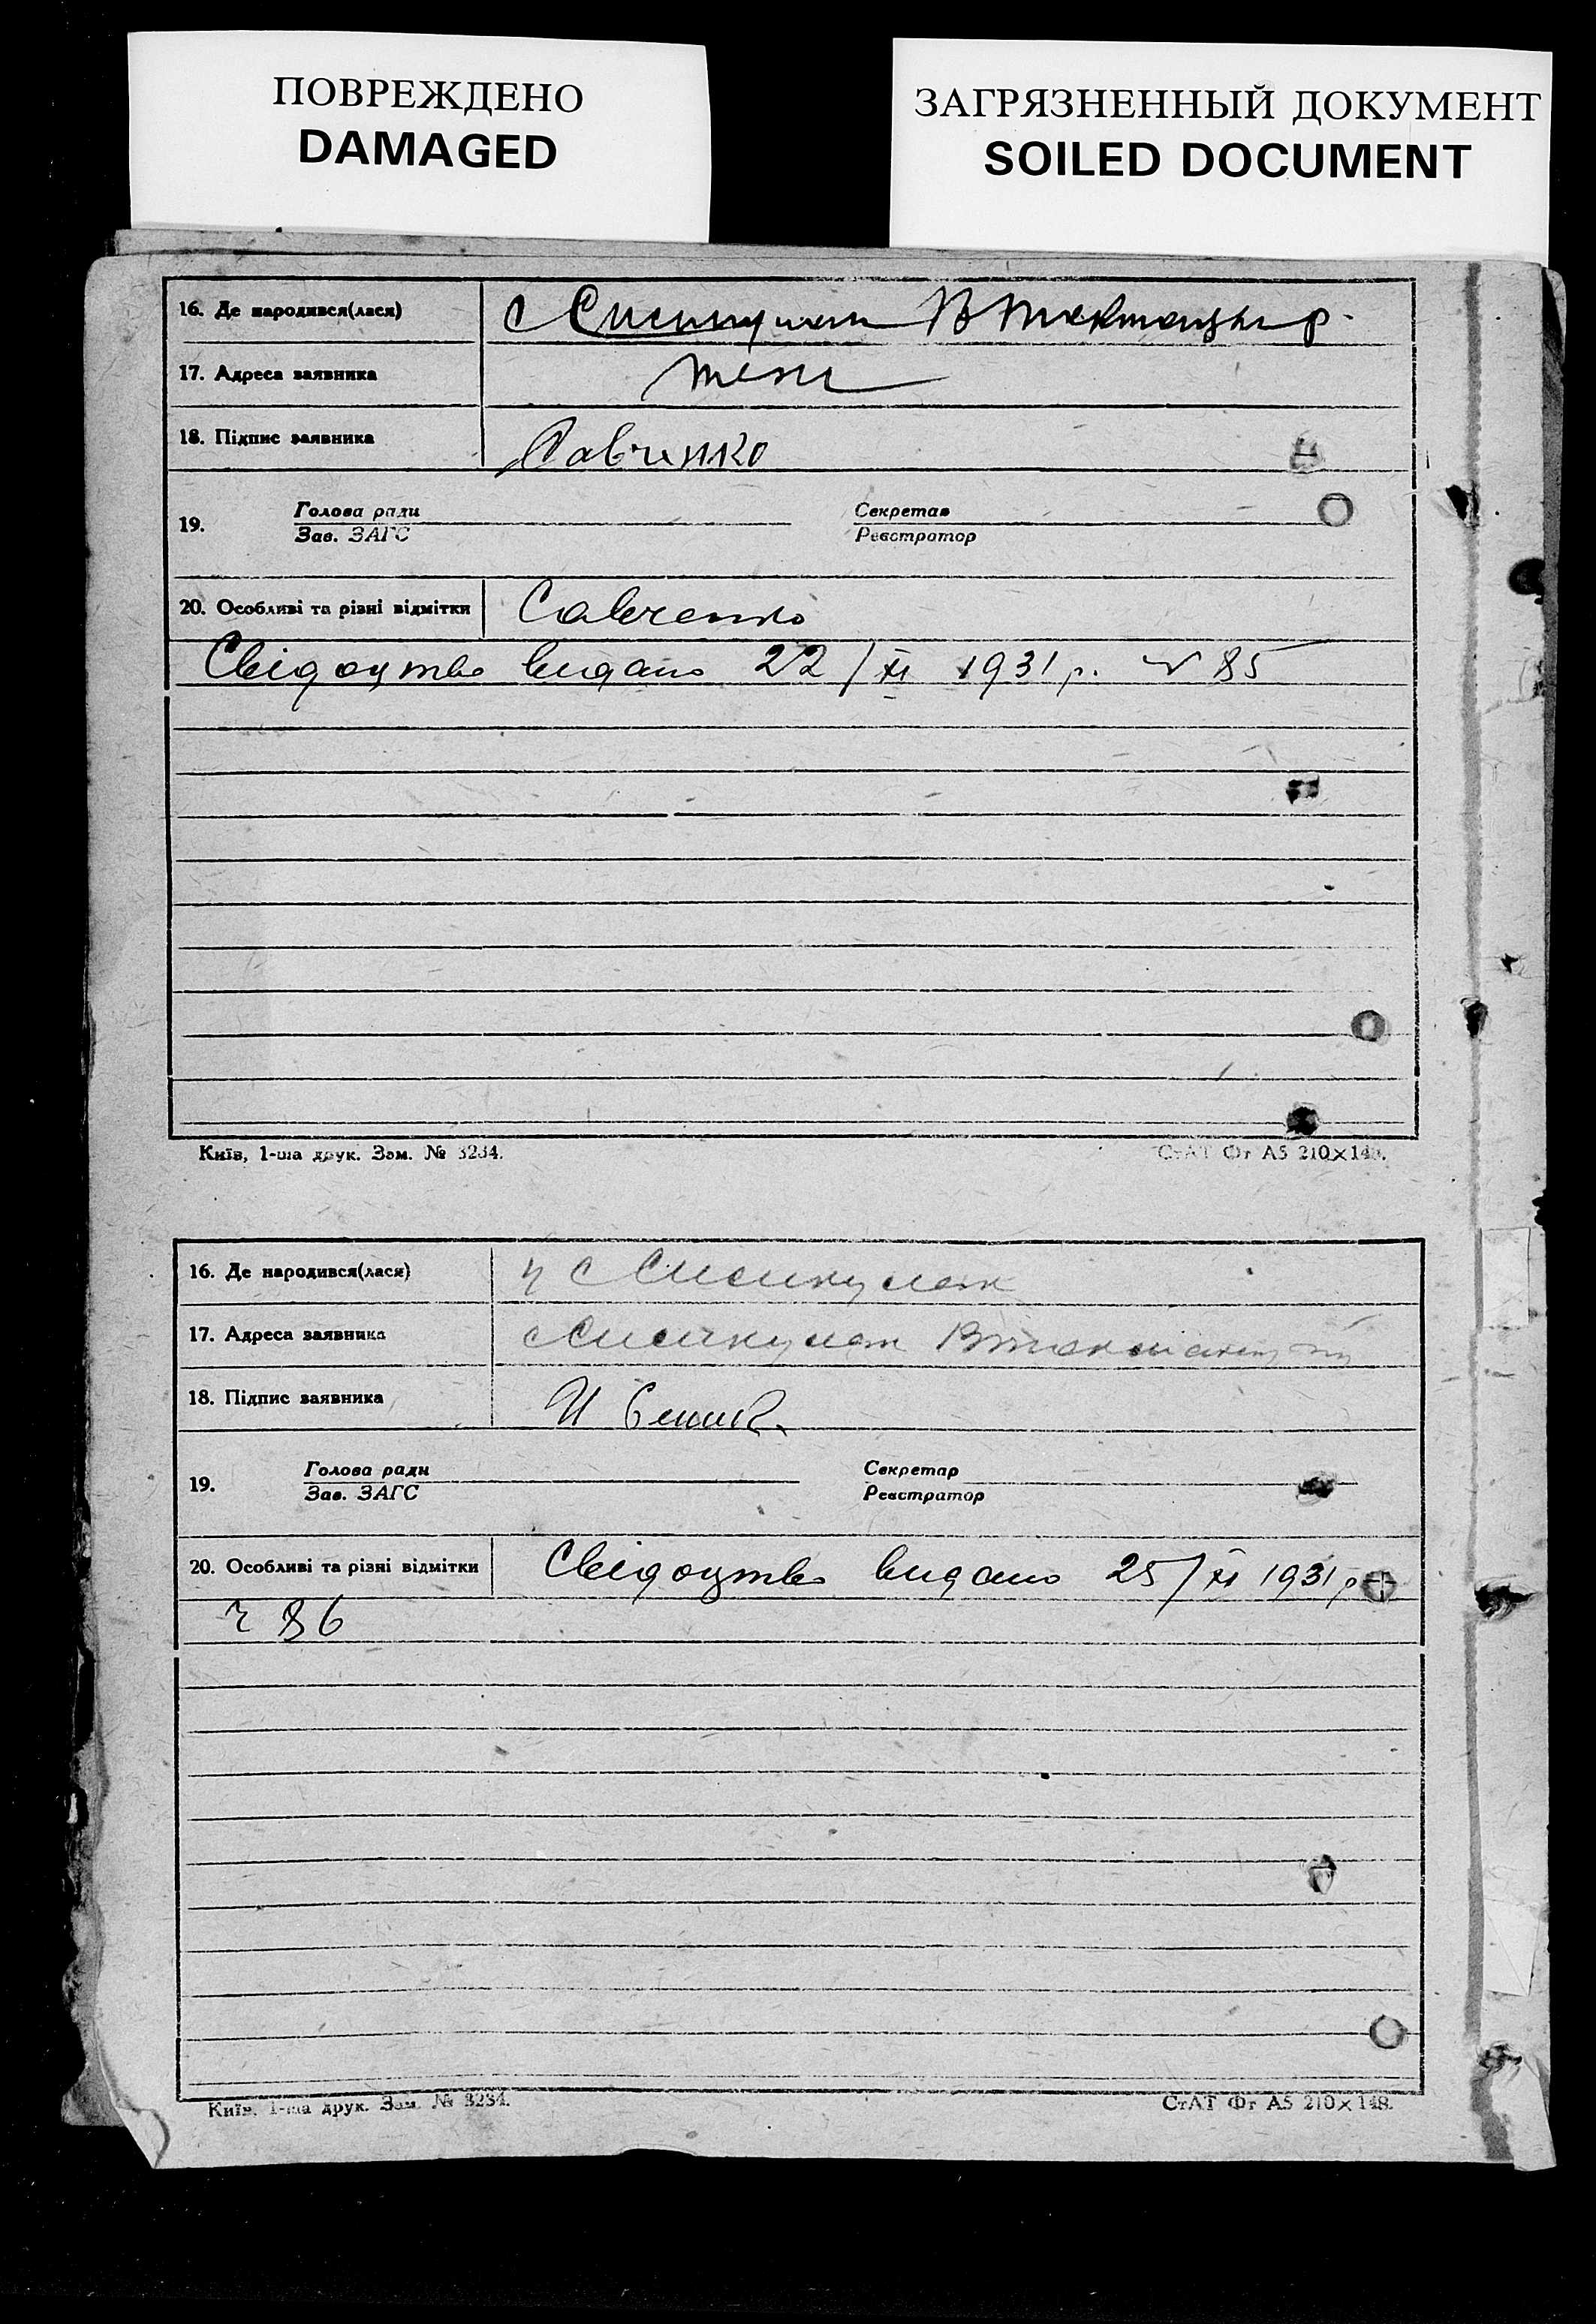 ПОВРЕЖДЕНО
DAMAGED
ЗАГРЯЗНЕННЫЙ ДОКУМЕНТ
SOILED DOCUMENT
16. Де народився(лася) с
17. Адреса заявника
18. Підпис заявника Савчинко
19. Голова ради Секретар
Зав. ЗАГС Реєстратор
20. Особливі та різні відмітки Савченко
Свідоцтво видано 22/XI 1931 р. № 85
Київ, 1-ша друк. Зам. № 3234.
СтАТ Фт А5 210×148.
16. Де народився(лася)
17. Адреса заявника
18. Підпис заявника
19. Голова ради Секретар
Зав. ЗАГС Реєстратор
20. Особливі та різні відмітки Свідоцтво видано 25/XI 1931 р
ч 86
Київ, 1-ша друк. Зам. № 3234.
СтАТ Фт А5 210×148.